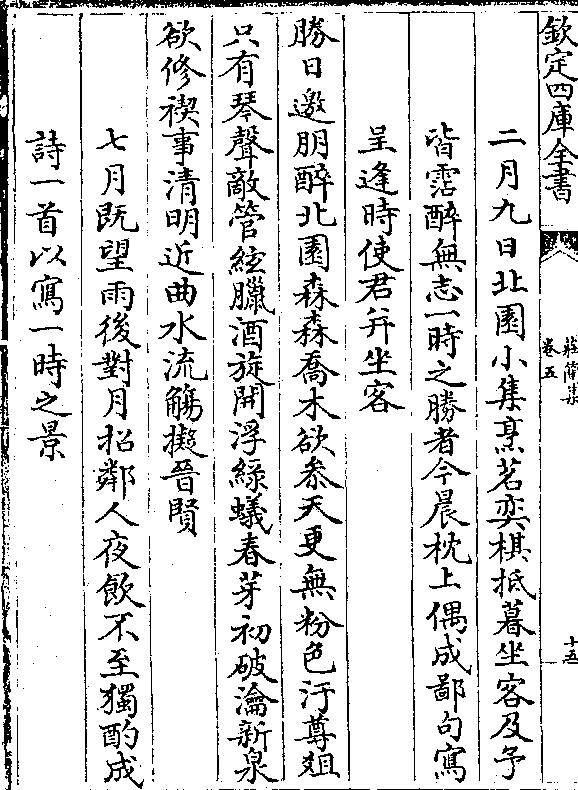 欽定四庫全書
莊簡集
卷五
十五
二月九日北園小集烹茗奕棋抵暮坐客及予
皆霑醉無志一時之勝者今晨枕上偶成鄙句寫
呈逢時使君并坐客
勝日邀朋醉北園森森喬木欲叅天更無粉色汙尊爼
只有琴聲敵管絃臘酒旋開浮綠蟻春芽初破瀹新泉
欲修禊事清明近曲水流觴擬晉賢
七月既望雨後對月招鄰人夜飲不至獨酌成
詩一首以寫一時之景